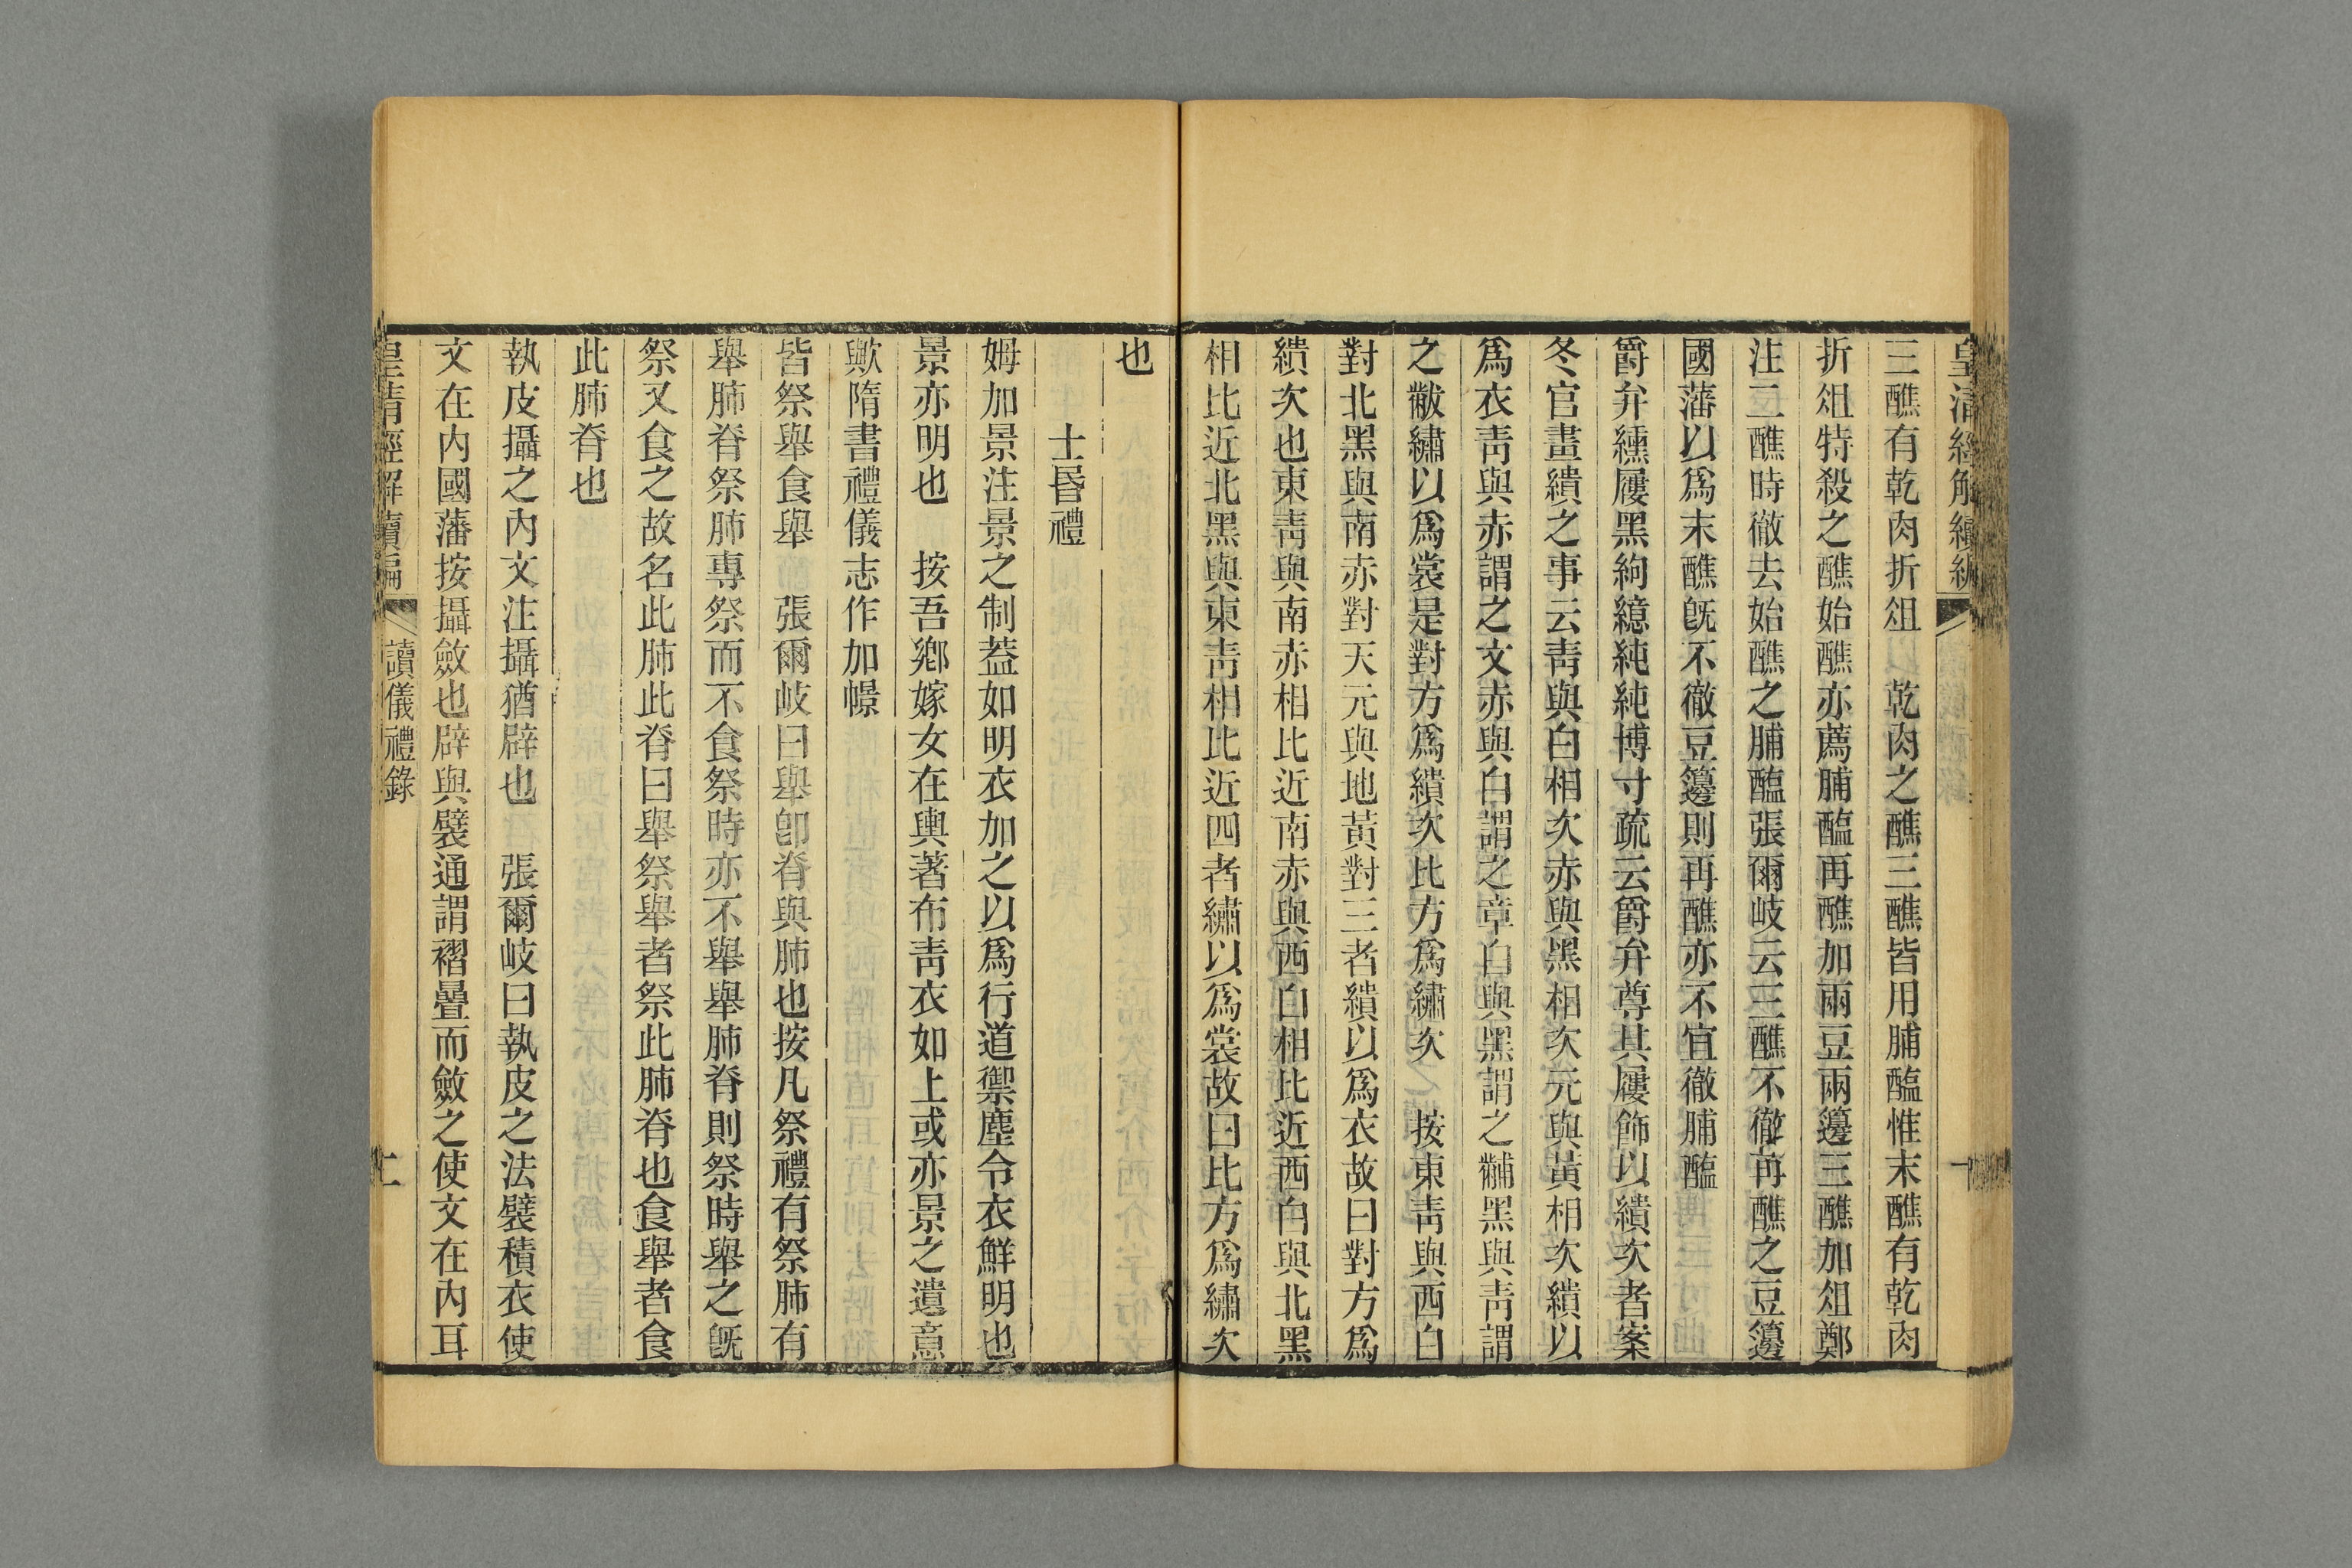 皇清經解續編
三醮有乾肉折俎　乾肉之醮三醮皆用脯醢惟末醮有乾肉
折俎特殺之醮始醮亦薦脯醢再醮加兩豆兩籩三醮加俎鄭
注二醮時徹去始醮之脯醢張爾岐云三醮不徹再醮之豆籩
國藩以爲末醮旣不徹豆籩則再醮亦不宜徹脯醢
爵弁纁屨黑絇繶純純博寸疏云爵弁尊其屨飾以繢次者案
冬官畫繢之事云靑與白相次赤與黑相次元與黃相次繢以
爲衣靑與赤謂之文赤與白謂之章白與黑謂之黼黑與靑謂
之黻繡以爲裳是對方爲繢次比方爲繡次　按東靑與西白
對北黑與南赤對天元與地黃對三者繢以爲衣故曰對方爲
繢次也東靑與南赤相比近南赤與西白相比近西白與北黑
相比近北黑與東靑相比近四者繡以爲裳故曰比方爲繡次
也
士昏禮
姆加景注景之制葢如明衣加之以爲行道禦塵令衣鮮明也
景亦明也　按吾鄕嫁女在輿著布靑衣如上或亦景之遺意
歟隋書禮儀志作加幜
皆祭舉食舉　張爾岐曰舉卽脊與肺也按凡祭禮有祭肺有
舉肺脊祭肺專祭而不食祭時亦不舉舉肺脊則祭時舉之旣
祭又食之故名此肺此脊曰舉祭舉者祭此肺脊也食舉者食
此肺脊也
執皮攝之內文注攝猶辟也　張爾岐曰執皮之法襞積衣使
文在內國藩按攝斂也辟與襞通謂褶疊而斂之使文在內耳
皇清經解續編　讀儀禮錄　二